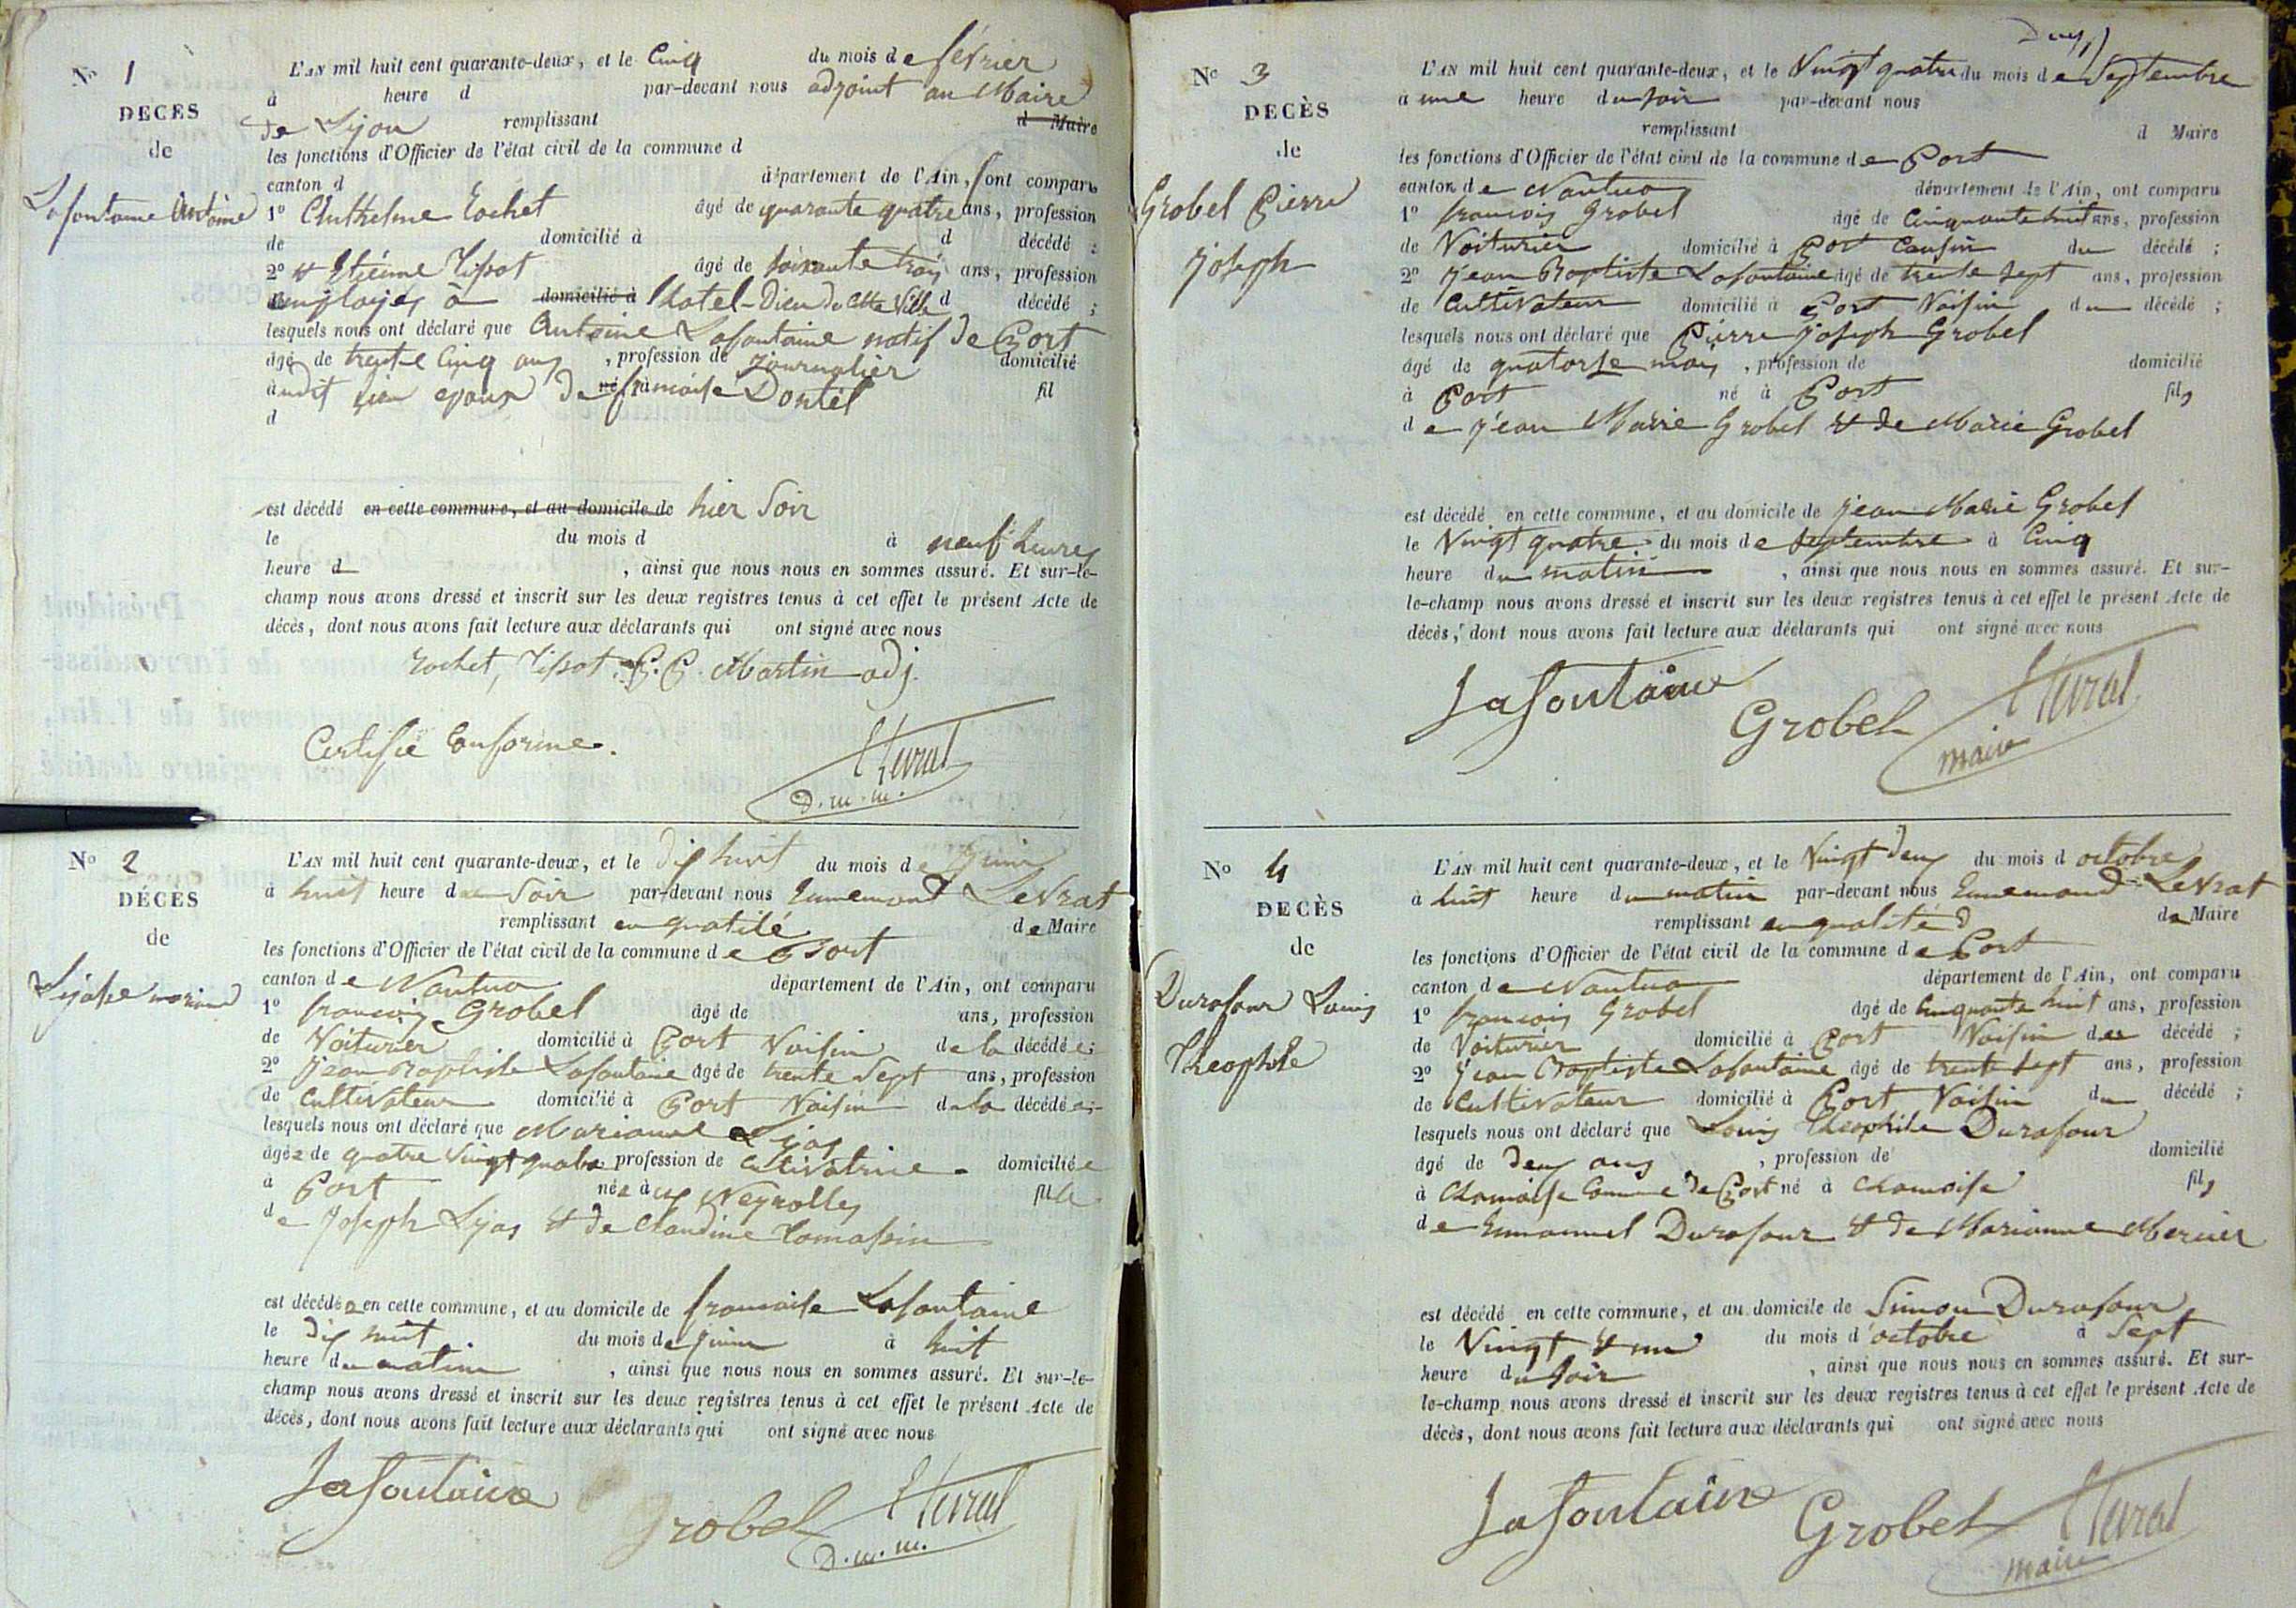 N° 1
DECÈS
de
Lafontaine Antoine
L'AN mil huit cent quarante-deux, et le Cinq du mois de février
à heure d par-devant nous adjoint au Maire
de Lyon remplissant d Maire
les fonctions d'Officier de l'état civil de la commune d
canton d département de l'Ain, sont comparu
1° Anthelme Rochet âgé de quarante quatre ans, profession
de domicilié à d décédé ;
2° et Etiénne Tissot âgé de soixante trois ans, profession
employés à domicilié à l'hotel-Dieu de cette Ville d décédé ;
lesquels nous ont déclaré que Antoine Lafontaine natif de Port
âgé de trente Cinq ans, profession de journalier domicilié
audit lieu epoux de né à francoise Dontel fil
d
est décédé en cette commune, et au domicile de hier Soir
le du mois d à neuf heures
heure d , ainsi que nous nous en sommes assuré. Et sur-le-
champ nous avons dressé et inscrit sur les deux registres tenus à cet effet le présent Acte de
décès, dont nous avons fait lecture aux déclarants qui ont signé avec nous
Rochet, Tissot P. C. Martin adj.
Certifié Conforme.
Levrat
D. m. m.
N° 2
DÉCÈS
de
L'AN mil huit cent quarante-deux, et le dix huit du mois de Juin
à huit heure du Soir par-devant nous Ennemond Levrat
remplissant en qualité de Maire
les fonctions d'Officier de l'état civil de la commune de Port
canton de Nantua département de l'Ain, ont comparu
1° francois Grobel âgé de ans, profession
de Voiturier domicilié à Port Voisin de la décédée ;
2° Jean Baptiste Lafontaine âgé de trente Sept ans, profession
de Cultivateur domicilié à Port Voisin de la décédée ;
lesquels nous ont déclaré que Marianne Lyas
âgée de quatre Vingt quatre profession de Cultivatrice domiciliée
à Port née aux Neyrolles fille
de Joseph Lyas et de Claudine Tomassin
est décédée en cette commune, et au domicile de francoise Lafontaine
le dix huit du mois de Juin à huit
heure du matin , ainsi que nous nous en sommes assuré. Et sur-le-
champ nous avons dressé et inscrit sur les deux registres tenus à cet effet le présent Acte de
décès, dont nous avons fait lecture aux déclarants qui ont signé avec nous
Lafontaine
Grobel Levrat
D. m. m.
N° 3
DECÈS
de
Grobel Pierre
Joseph
L'AN mil huit cent quarante-deux, et le Vingt quatre du mois de Septembre
à une heure du soir par-devant nous
remplissant d Maire
les fonctions d'Officier de l'état civil de la commune de Port
canton de Nantua département de l'Ain, ont comparu
1° francois Grobel âgé de Cinquante huit ans, profession
de Voiturier domicilié à Port Cousin du décédé ;
2° Jean Baptiste Lafontaine âgé de trente sept ans, profession
de Cultivateur domicilié à Port Voisin du décédé ;
lesquels nous ont déclaré que Pierre Joseph Grobel
âgé de quatorse mois, profession de domicilié
à Port né à Port fils
de Jean Marie Grobel et de Marie Grobel
est décédé en cette commune, et au domicile de Jean Marie Grobel
le Vingt quatre du mois de Septembre à Cinq
heure du matin , ainsi que nous nous en sommes assuré. Et sur-
le-champ nous avons dressé et inscrit sur les deux registres tenus à cet effet le présent Acte de
décès, dont nous avons fait lecture aux déclarants qui ont signé avec nous
Lafontaine Grobel Levrat
maire
N° 4
DECÈS
de
Durafour Louis
Théophile
L'AN mil huit cent quarante-deux, et le Vingt deux du mois d octobre
à huit heure du matin par-devant nous Ennemond Levrat
remplissant en qualité d de Maire
les fonctions d'Officier de l'état civil de la commune de Port
canton de Nantua département de l'Ain, ont comparu
1° francois Grobel âgé de Cinquante huit ans, profession
de Voiturier domicilié à Port Voisin du décédé ;
2° Jean Baptiste Lafontaine âgé de trente sept ans, profession
de Cultivateur domicilié à Port Voisin du décédé ;
lesquels nous ont déclaré que Louis Théophile Durafour
âgé de deux ans, profession de domicilié
à Chamoise Comune de Port né à Chamoise fils
de Emmanuel Durafour et de Marianne Mercier
est décédé en cette commune, et au domicile de Simon Durafour
le Vingt et un du mois d'octobre à Sept
heure du soir , ainsi que nous nous en sommes assuré. Et sur-
le-champ nous avons dressé et inscrit sur les deux registres tenus à cet effet le présent Acte de
décès, dont nous avons fait lecture aux déclarants qui ont signé avec nous
Lafontaine Grobel Levrat
maire